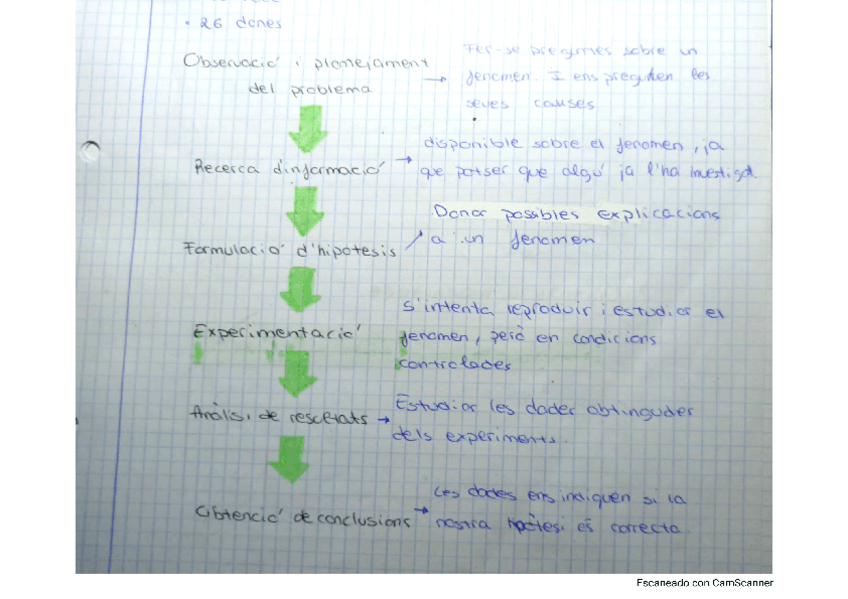 • 26 dones
Observació i planejament
del problema
→ Fer-se preguntes sobre un
fenomen. I ens pregunten les
seves causes
Recerca d'informació →
disponible sobre el fenomen, ja
que potser que algú ja l'ha investigat.
Formulació d'hipotesis
Donar possibles explicacions
a un fenomen
Experimentació
S'intenta reproduir i estudiar el
fenomen, però en condicions
controlades
Anàlisi de resultats →
Estudiar les dades obtingudes
dels experiments.
Obtenció de conclusions →
Les dades ens indiquen si la
nostra hipòtesi és correcta.
Escaneado con CamScanner